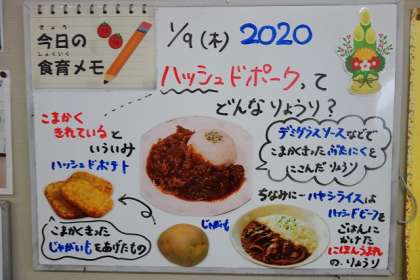 きょう
今日の
しょくいく
食育メモ
1/9(木) 2020
ハッシュドポークって
どんなりょうり?
こまかく
きれていると
いういみ
ハッシュドポテト
こまかくきった
じゃがいもをあげたもの
じゃがいも
デミグラスソースなどで
こまかきったぶたにくを
にこんだりょうり
ちなみにーハヤシライスは
ハッシュドビーフを
ごはんに
かけた
にほんうまれ
のりょうり